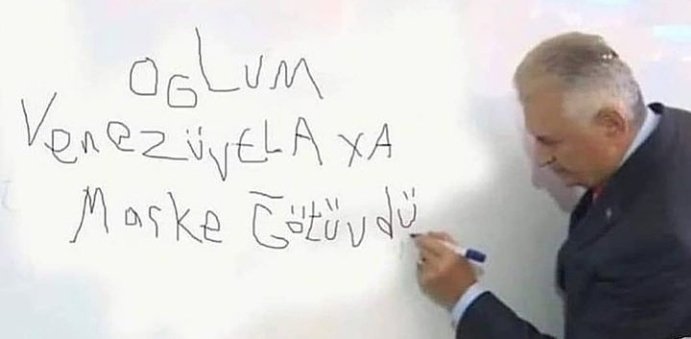 OGLUM
VenezüyELAYA
Maske Götüvdü